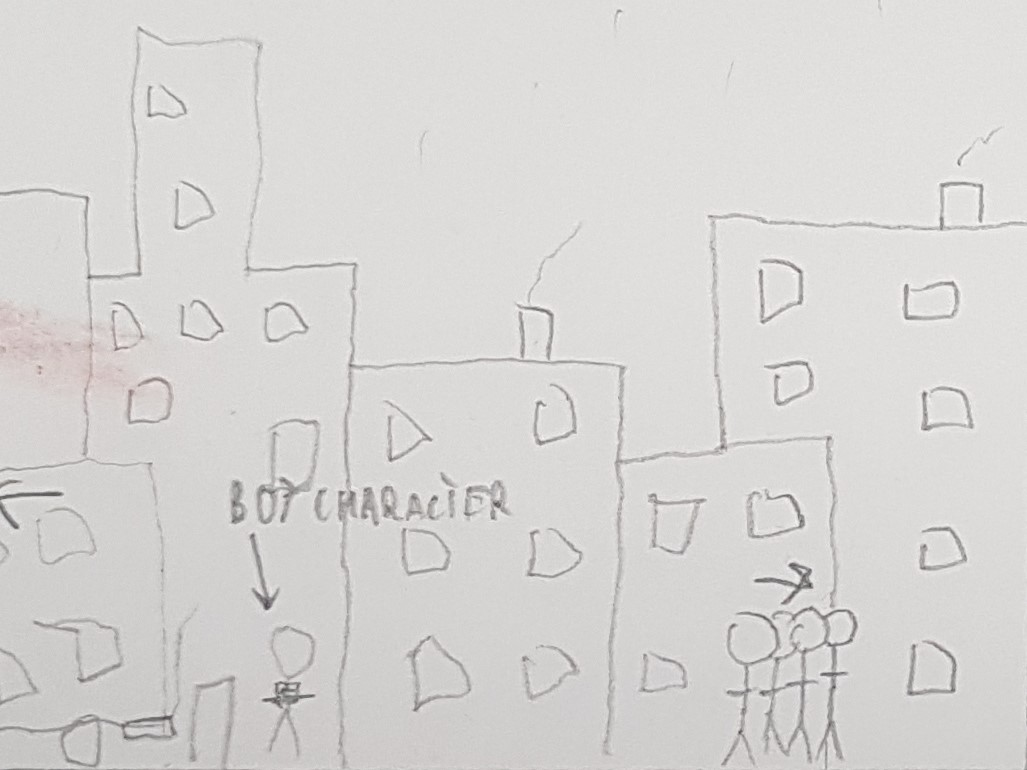 BOY CHARACTER